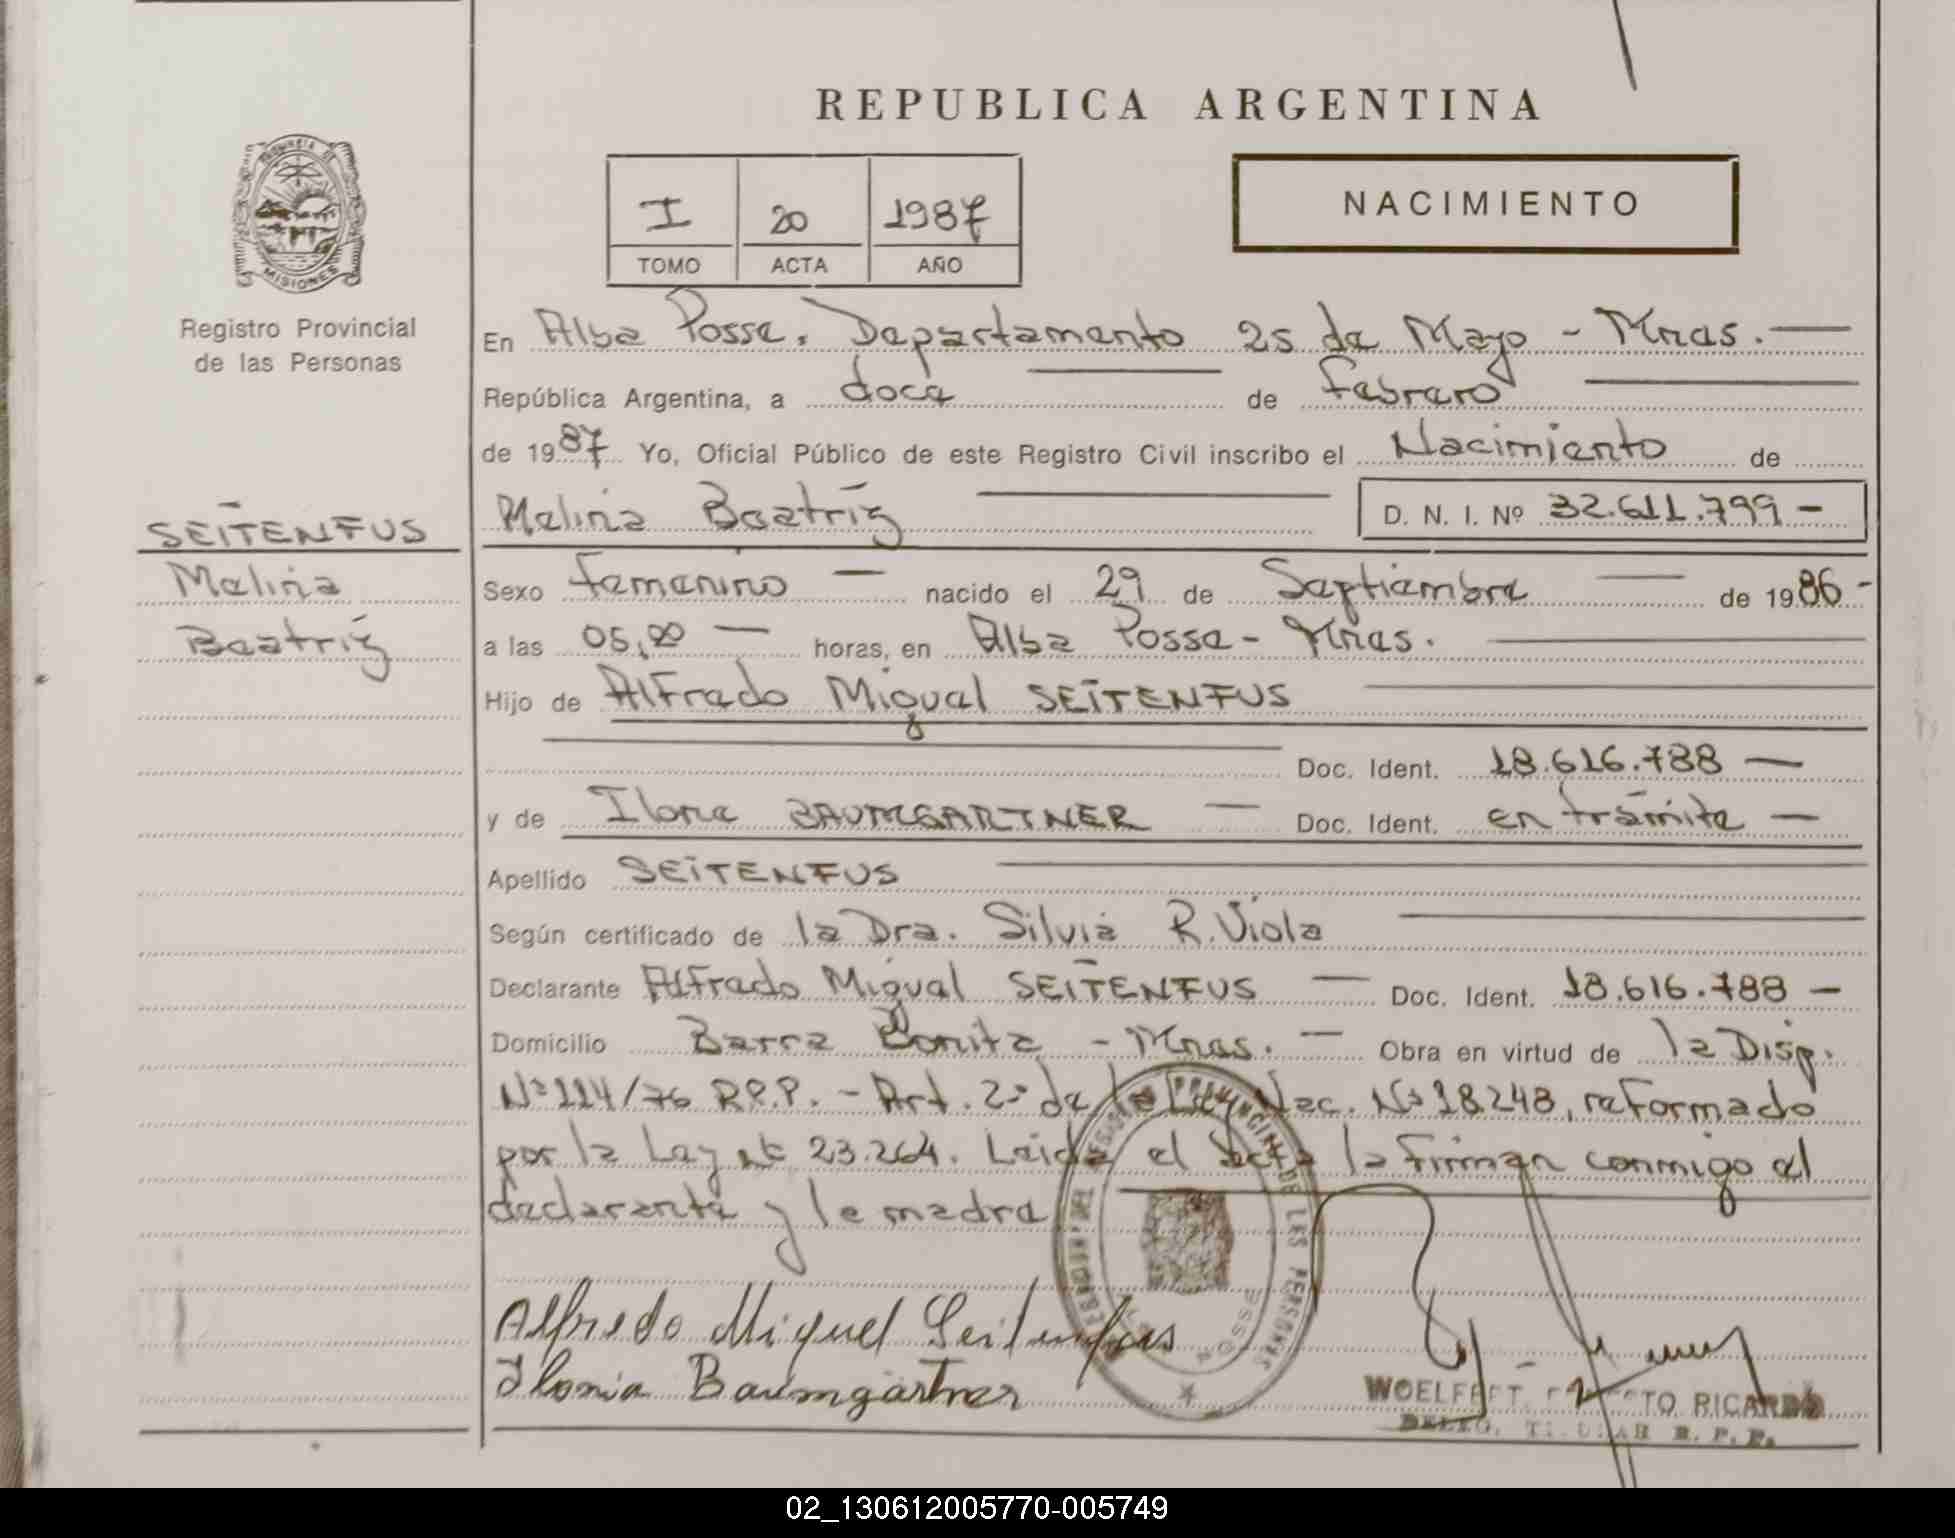 REPUBLICA ARGENTINA
I 20 1987
TOMO ACTA AÑO
NACIMIENTO
PROVINCIA DE
MISIONES
Registro Provincial
de las Personas
SEITENFUS
Melina
Beatriz
En Alba Posse, Departamento 25 de Mayo - Mnas.
República Argentina, a doce de febrero
de 1987 Yo, Oficial Público de este Registro Civil inscribo el Nacimiento de
Melina Beatriz D. N. I. Nº 32.611.799 -
Sexo femenino — nacido el 29 de Septiembre — de 1986 -
a las 05,00 — horas, en Alba Posse - Mnas.
Hijo de Alfredo Miguel SEITENFUS
Doc. Ident. 18.616.788 —
y de BAUMGARTNER — Doc. Ident. en trámite —
Apellido SEITENFUS
Según certificado de la Dra. Silvia R. Viola
Declarante Alfredo Miguel SEITENFUS — Doc. Ident. 18.616.788 —
Domicilio Barra Bonita - Mnas. — Obra en virtud de la Disp.
Nº 114/76 R.P.P. - Art. 2º de la Ley Nac. Nº 18248, reformado
por la Ley Nº 23.264. Leida el acta la firman conmigo el
declarante y la madre
Alfredo Miguel Seitenfus
Ilonia Baumgärtner
RICARDO
R. P. P.
POSSE
02_130612005770-005749